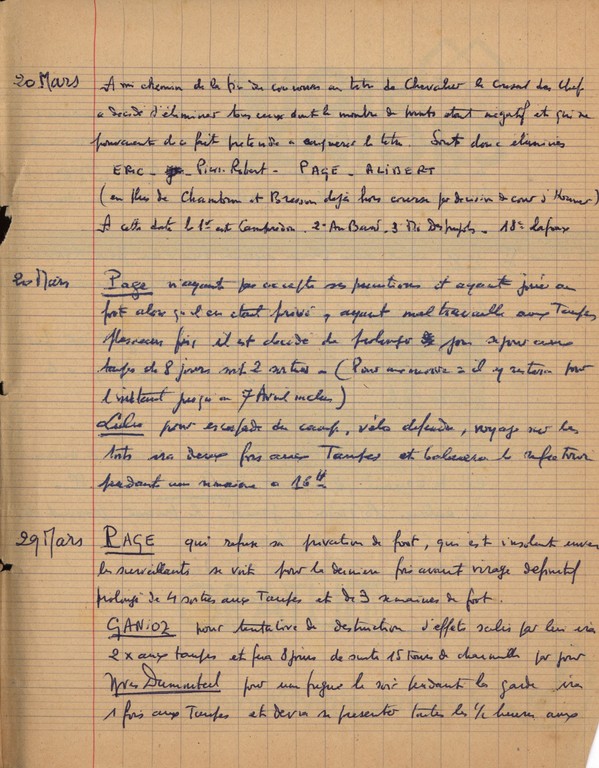 20 Mars A mi chemin de la fin du concours au titre de Chevalier le Conseil des Chefs
a décidé d'éliminer tous ceux dont le nombre de points était négatif et qui ne
pouvaient de ce fait prétendre à conquérir le titre. Sont donc éliminés
ERIC - Pierre Robert - PAGE - ALIBERT
(en plus de Chambon et Bresson déjà hors course par décision de cour d'Honneur)
A cette date le 1er est 2e 3e 18e
20 Mars Page n'ayant pas accepté ses punitions et ayant joué au
foot alors qu'il en était privé, ayant mal travaillé aux Taupes
plusieurs fois, il est décidé de prolonger son séjour aux
taupes de 8 jours soit 2 sorties (Pour mémoire il y restera pour
l'instant jusqu'au 7 Avril inclus)
Lulu pour escapade du camp, vélo défendu, voyage sur les
toits ira deux fois aux Taupes et balaiera le réfectoire
pendant une semaine à 16H
29 Mars PAGE qui refuse sa privation de foot, qui est insolent envers
les surveillants se voit pour la dernière fois avant virage définitif
prolongé de 4 sorties aux Taupes et de 3 semaines de foot.
GANIOZ pour tentative de destruction d'effets salis par lui ira
2 x aux taupes et fera 8 jours de suite 15 tours de charmille par jour
Yves Dumonteil pour une fugue le soir pendant la garde ira
1 fois aux Taupes et devra se présenter toutes les 1/2 heures aux